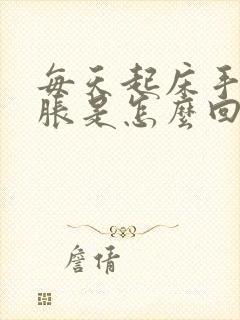 每天起床手
脹是怎麼回
詹倩